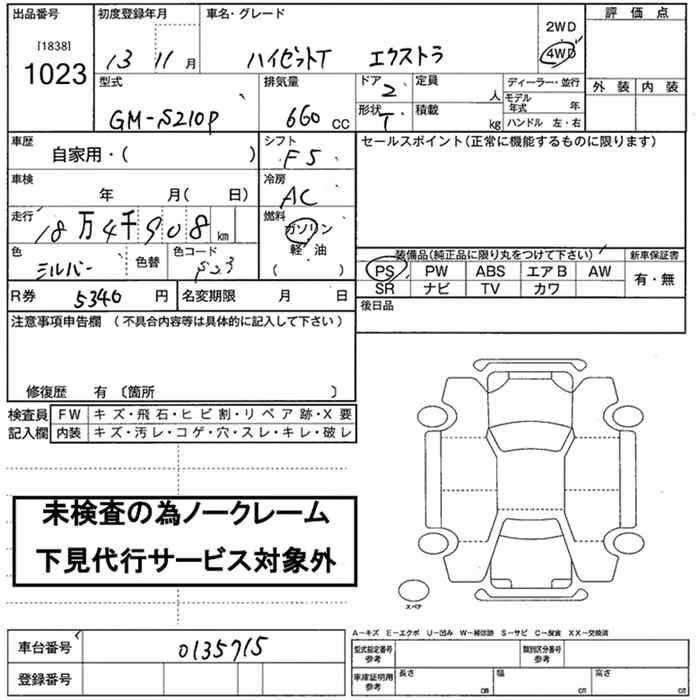 出品番号 初度登録年月 車名・グレード 評価点
[1838] 1023 13 11月 ハイゼットT エクストラ 2WD 4WD
型式 排気量 ドア 2 定員 人 ディーラー・並行 外装 内装
GM-S210P 660 CC 形状 T 積載 kg モデル年式 年 ハンドル 左・右
車歴 自家用・( ) シフト F5 セールスポイント(正常に機能するものに限ります)
車検 年 月( 日) 冷房 AC
走行 18万4千908 km 燃料 ガソリン 軽・油 ( )
色 シルバー 色替 色コード 装備品(純正品に限り丸をつけて下さい) 新車保証書
PS PW ABS エアB AW 有・無
SR ナビ TV カワ
R券 5340円 名変期限 月 日 後日品
注意事項申告欄(不具合内容等は具体的に記入して下さい)
修復歴 有〔箇所 〕
検査員 FW キズ・飛石・ヒビ割・リペア跡・X要
記入欄 内装 キズ・汚レ・コゲ・穴・スレ・キレ・破レ
未検査の為ノークレーム
下見代行サービス対象外
スペア
A−キズ E−エクボ U−凹み W−補修跡 S−サビ C−腐食 XX−交換済
車台番号 0135715 型式指定番号 参考 類別区分番号 参考
登録番号 車庫証明用 参考 長さ cm 幅 cm 高さ cm